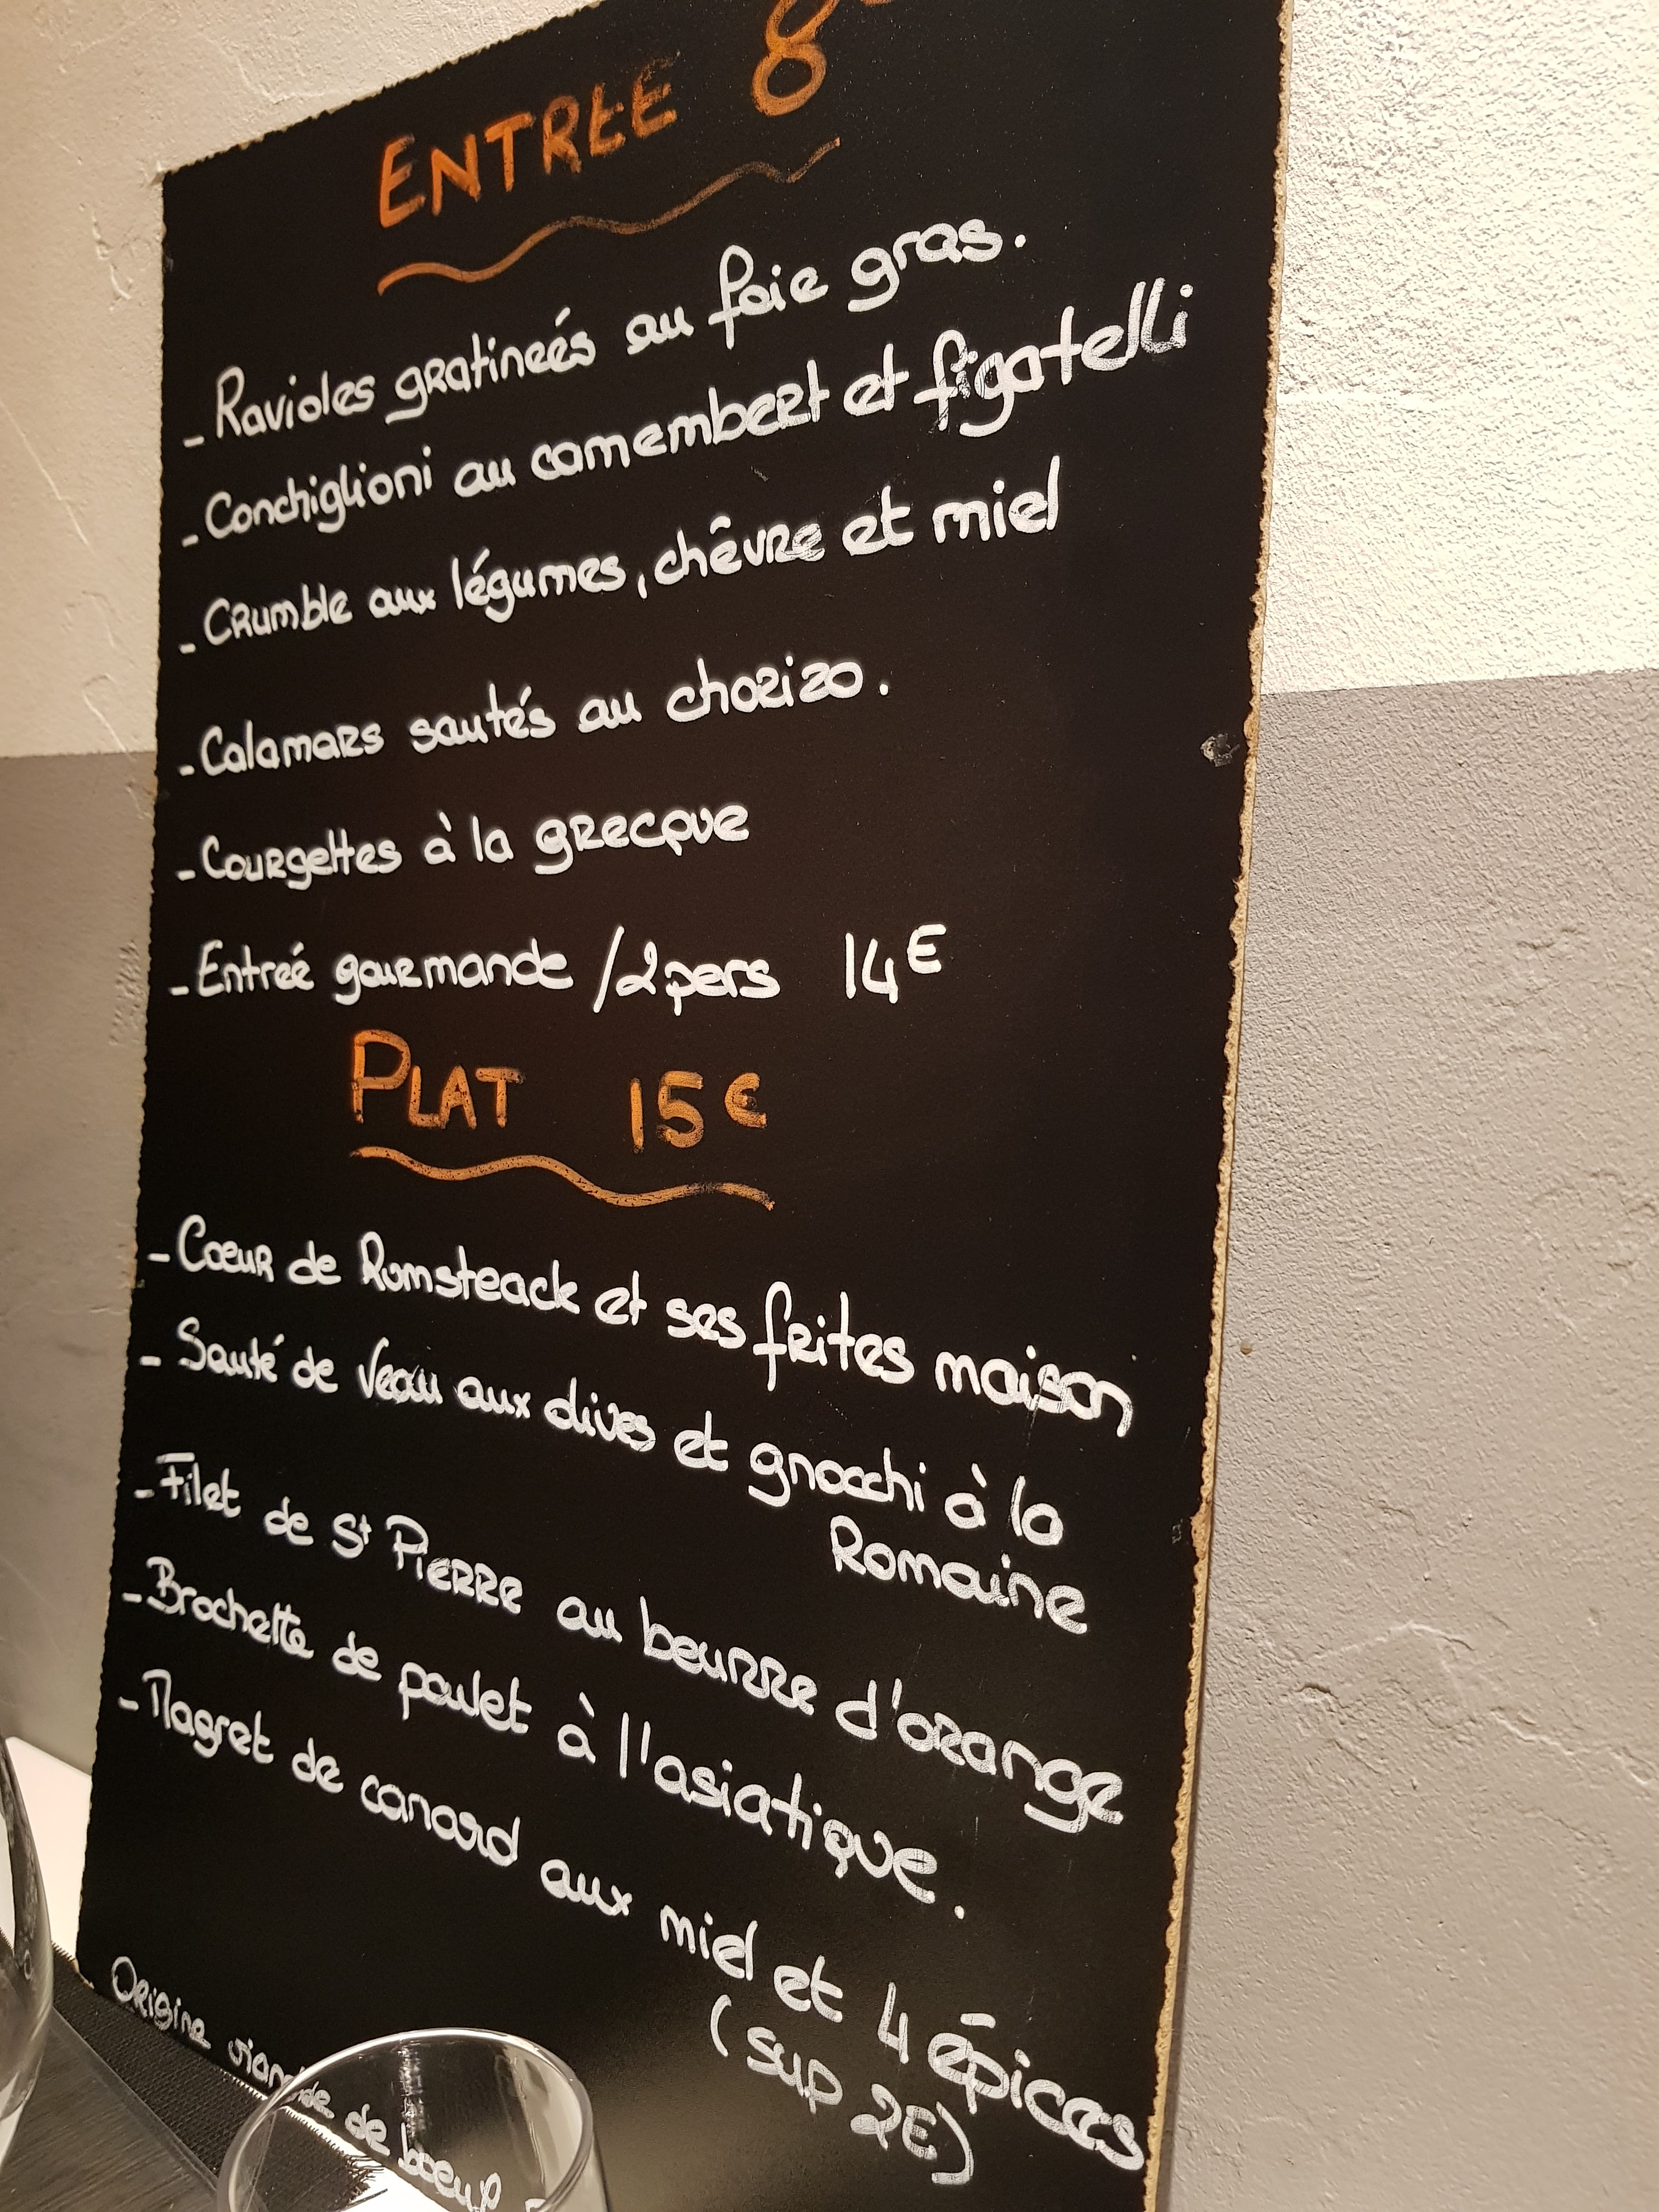 ENTREE 8
- Ravioles gratineés au foie gras.
- Conchiglioni au camembert et figatelli
- Crumble aux légumes, chêvre et miel
- Calamars sautés au chorizo.
- Courgettes à la grecque
- Entreé gourmande /2pers 14€
PLAT 15€
- Cœur de Rumsteack et ses frites maison
- Sauté de Veau aux olives et gnocchi à la
Romaine
- Filet de St Pierre au beurre d'orange
- Brochette de poulet à l'asiatique.
- Magret de canard aux miel et 4 épices
(sup 2€)
Origine viande de boeuf